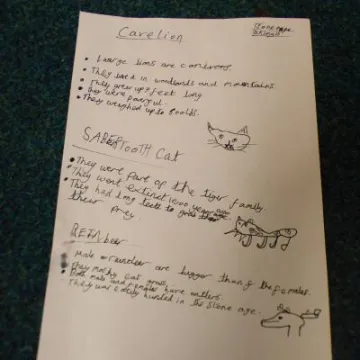 Carelion
Stone Age
animals
Large lions are carnivores.
They lived in woodlands and mountains
They grew up 7 feet long
They were powerful.
They weighed up to
SABERTOOTH Cat
They were part of the tiger family
They went extinct years
They had long teeth to their
prey
REINdeer
male reindeer are bigger than the females.
They mainly eat grass,
Both male and females have antlers
They was hunted in the Stone age.